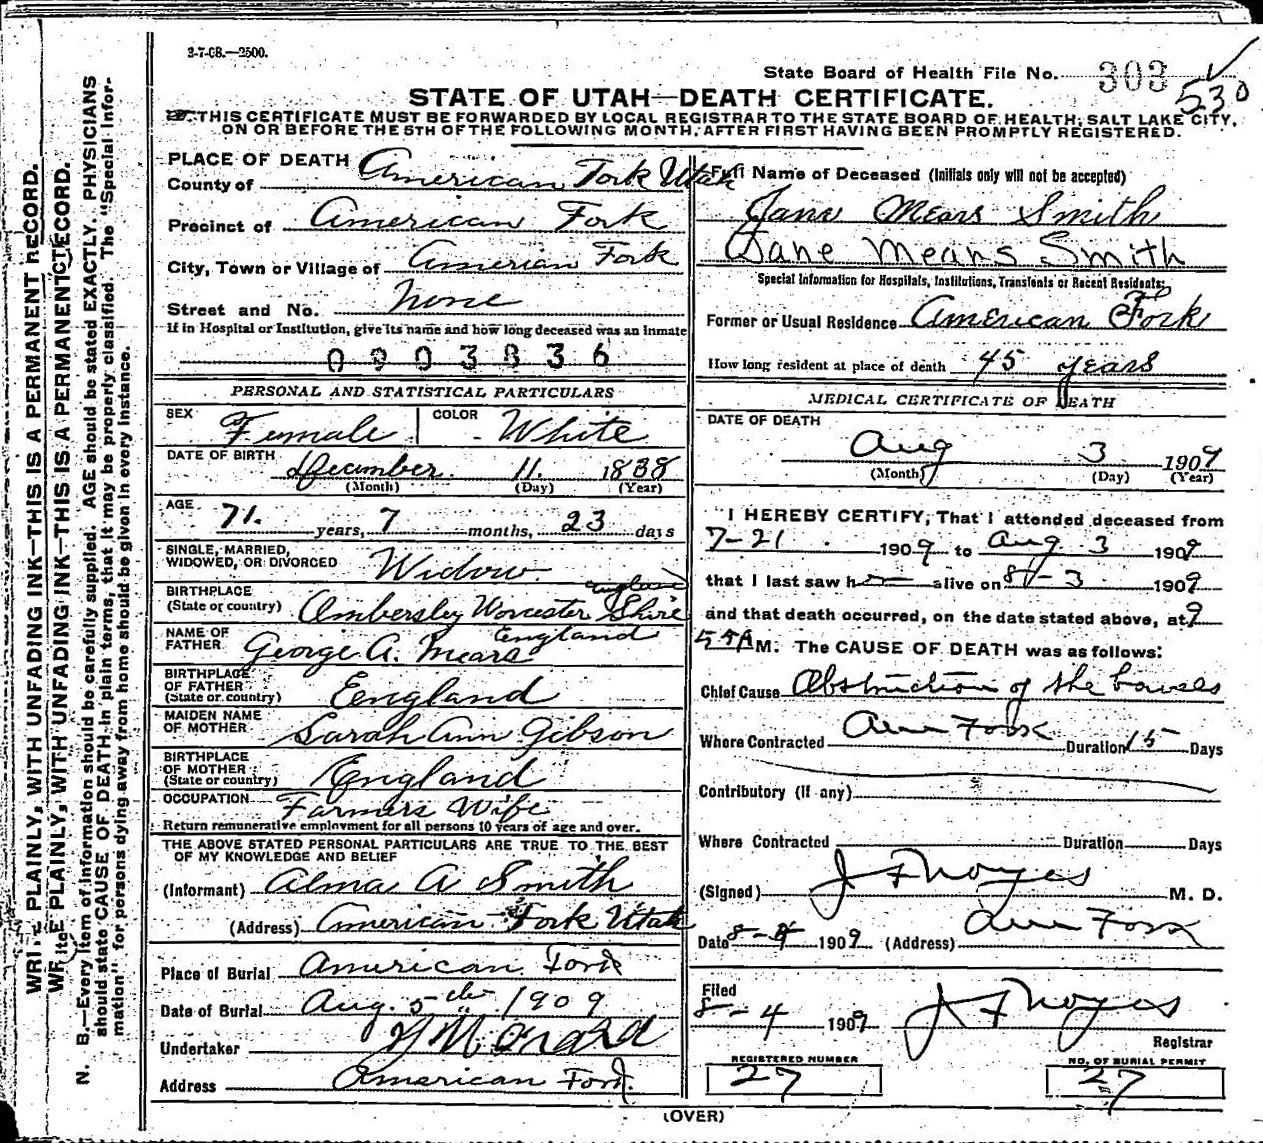 3-7-08.—2500.
State Board of Health File No. 303
530
STATE OF UTAH—DEATH CERTIFICATE.
THIS CERTIFICATE MUST BE FORWARDED BY LOCAL REGISTRAR TO THE STATE BOARD OF HEALTH, SALT LAKE CITY,
ON OR BEFORE THE 5TH OF THE FOLLOWING MONTH, AFTER FIRST HAVING BEEN PROMPTLY REGISTERED.
PLACE OF DEATH
County of American Fork Utah
Precinct of American Fork
City, Town or Village of Amerian Fork
Street and No. none
If in Hospital or Institution, give its name and how long deceased was an inmate
0903836
PERSONAL AND STATISTICAL PARTICULARS
SEX Female COLOR White
DATE OF BIRTH December 11. 1838
(Month) (Day) (Year)
AGE 71. years, 7 months, 23 days
SINGLE, MARRIED,
WIDOWED, OR DIVORCED Widow
BIRTHPLACE England
(State or country) Ombersley Worcester Shire
England
NAME OF
FATHER George A. Mears
BIRTHPLACE
OF FATHER England
(State or country)
MAIDEN NAME
OF MOTHER Sarah Ann Gibson
BIRTHPLACE
OF MOTHER England
(State or country)
OCCUPATION Farmers Wife
Return remunerative employment for all persons 10 years of age and over.
THE ABOVE STATED PERSONAL PARTICULARS ARE TRUE TO THE BEST
OF MY KNOWLEDGE AND BELIEF
(Informant) Alma A Smith
(Address) American Fork Utah
Place of Burial American Fork
Date of Burial Aug. 5th 1909
Undertaker
Address American Fork.
Full Name of Deceased (Initials only will not be accepted)
Jane Mears Smith
Jane Means Smith
Special Information for Hospitals, Institutions, Transients or Recent Residents:
Former or Usual Residence American Fork
How long resident at place of death 45 years
MEDICAL CERTIFICATE OF DEATH
DATE OF DEATH
Aug 3 1909
(Month) (Day) (Year)
I HEREBY CERTIFY, That I attended deceased from
7-21 1909 to Aug 3 1909
that I last saw h alive on 8-3 1909
and that death occurred, on the date stated above, at 9
55 A M. The CAUSE OF DEATH was as follows:
Chief Cause Obstruction of the bowels
Where Contracted Am Fork Duration 15 Days
Contributory (if any)
Where Contracted Duration Days
(Signed) J F Noyes M. D.
Date 8-4 1909 (Address) Am Fork
Filed
8-4 1909 J F Noyes
Registrar
REGISTERED NUMBER
27
NO. OF BURIAL PERMIT
27
(OVER)
WRITE PLAINLY, WITH UNFADING INK—THIS IS A PERMANENT RECORD.
WRITE PLAINLY, WITH UNFADING INK—THIS IS A PERMANENT RECORD.
N. B.—Every item of information should be carefully supplied. AGE should be stated EXACTLY. PHYSICIANS
should state CAUSE OF DEATH in plain terms, that it may be properly classified. The "Special Infor-
mation" for persons dying away from home should be given in every instance.